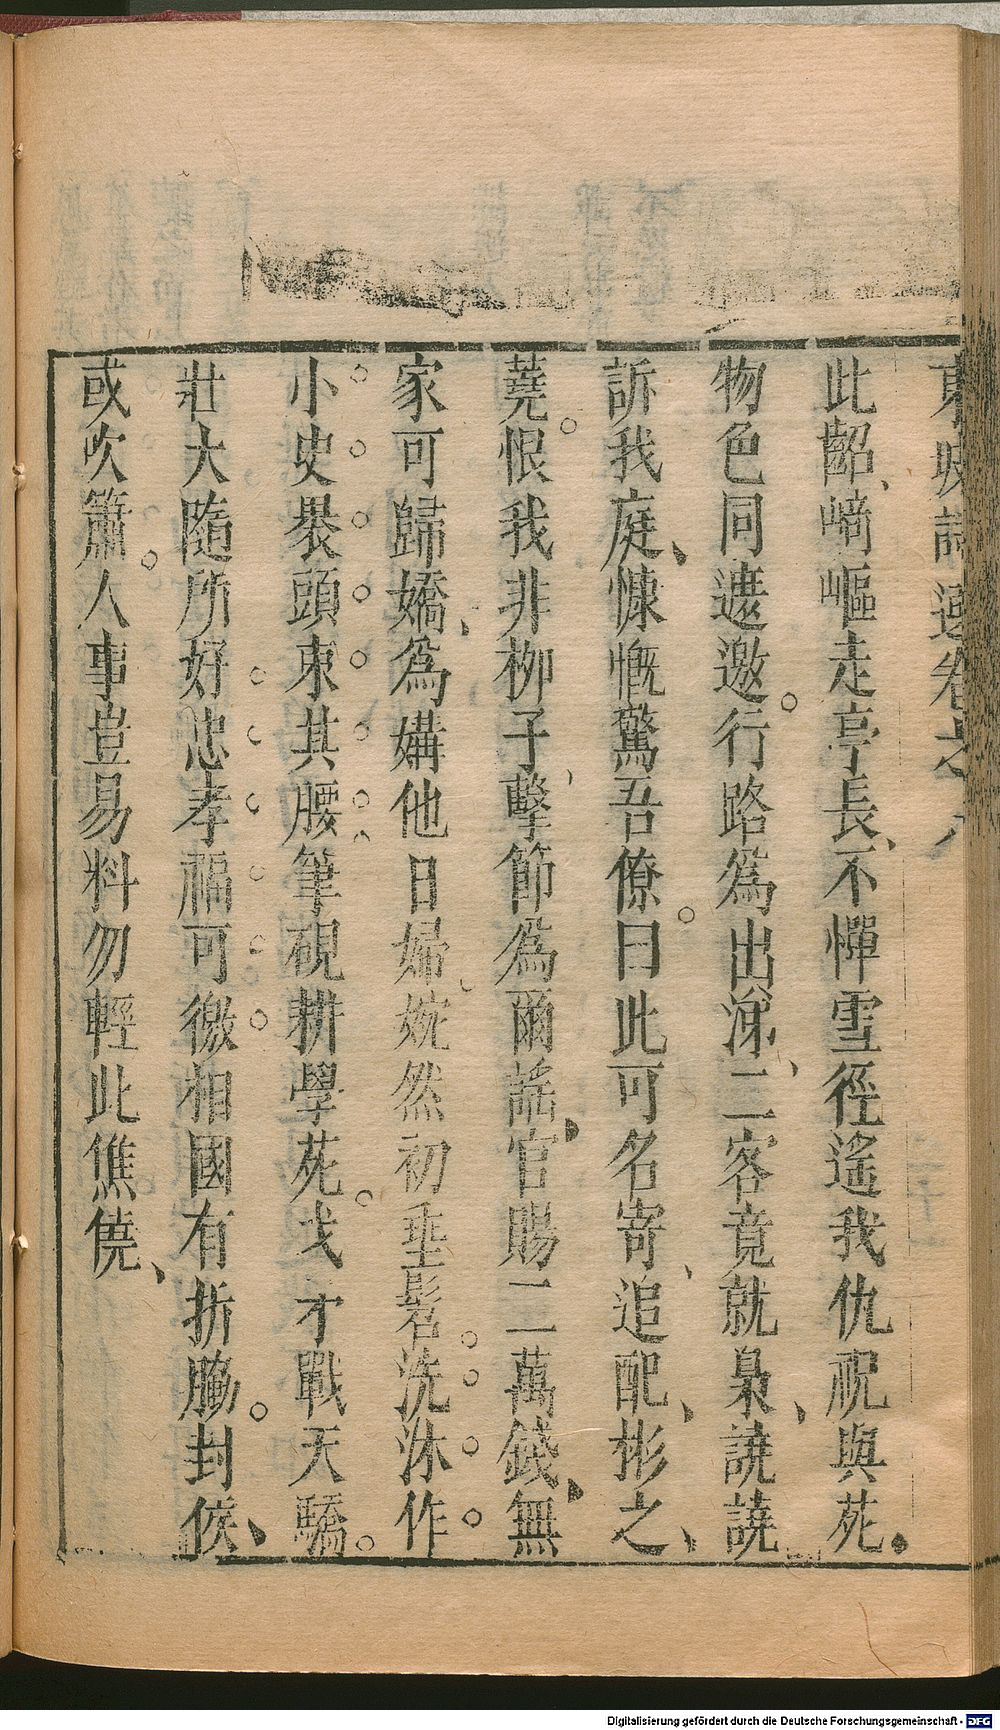 此齠崎嶇走亭長不憚雪徑遙我仇祝與死
物色同遮邀行路爲出涕二客竟就梟譊譊
訴我庭慷慨驚吾僚曰此可名寄追配彬之
蕘恨我非柳子擊節爲爾謠官賜二萬錢無
家可歸嬌爲媾他日婦婉然初垂髫洗沐作
小史褁頭束其腰筆硯耕學苑戈才戰天驕
壯大隨所好忠孝福可徼相國有折脇封侯
或吹簫人事豈易料勿輕此僬僥
Digitalisierung gefördert durch die Deutsche Forschungsgemeinschaft - DFG